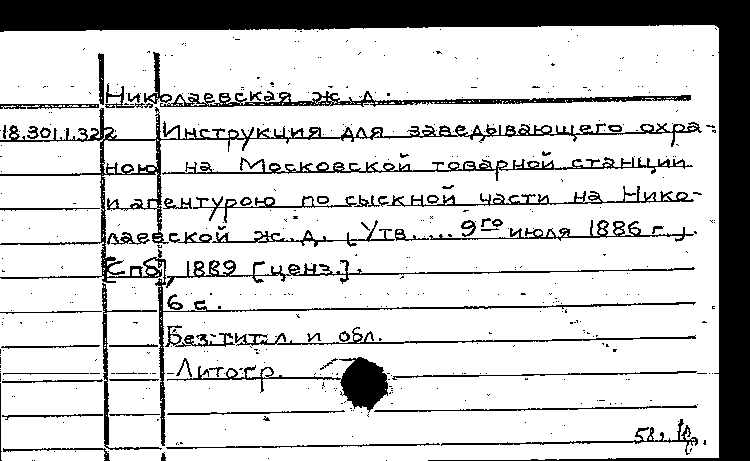 Николаевская ж. д.
18.301.1.322 Инструкция для заведывающего охра-
ною на Московской товарной станции
и агентурою по сыскной части на Нико-
лаевской ж. д. [Утв.... 9го июля 1886 г.].
[Спб], 1889 [ценз.].
6 с.
Без тит. л. и обл.
Литогр.